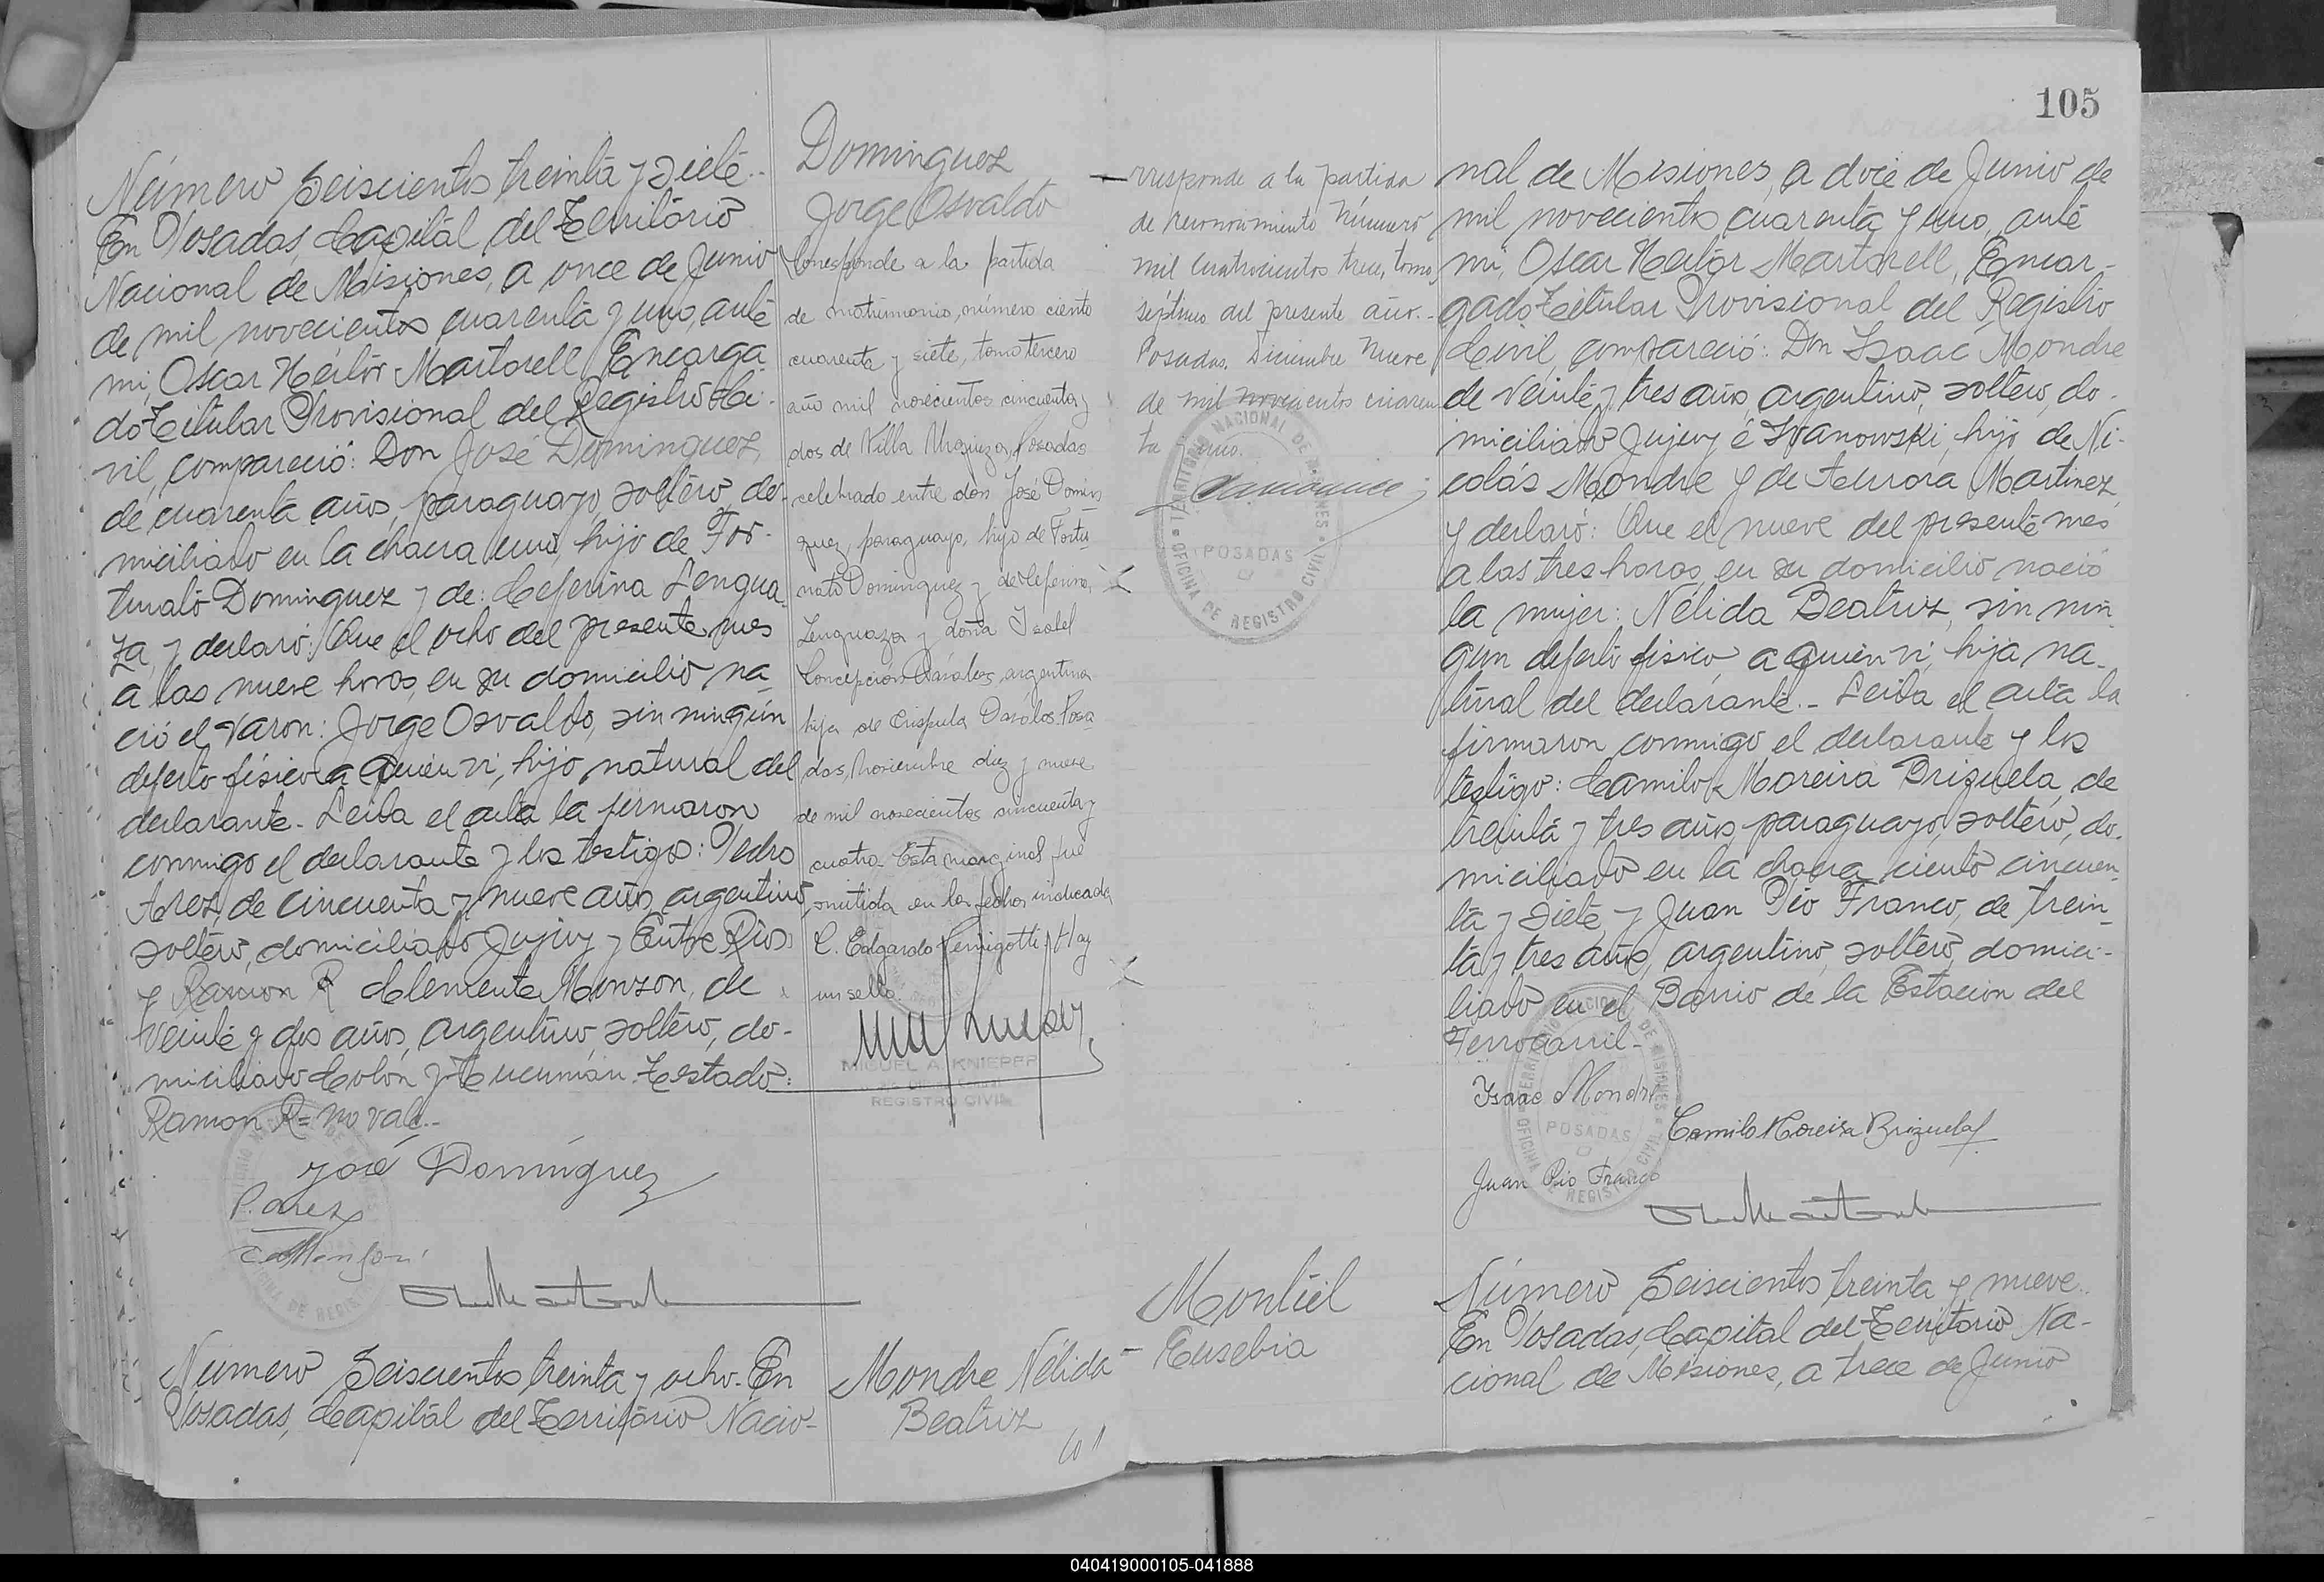 Número Seiscientos treinta y siete..
En Posadas, Capital del Territorio
Nacional de Misiones, a once de Junio
de mil novecientos cuarenta y uno, ante
mi, Oscar Héctor Martorell Encarga
do Titular Provisional del Registro Ci-
vil, compareció: Don José Dominguez,
de cuarenta años, paraguayo, soltero, do-
miciliado en la chacra uno, hijo de For-
tunato Dominguez y de: Ceferina Lengua-
za, y declaró: Que el ocho del presente mes
a las nueve horas, en su domicilio na-
ció el varon: Jorge Osvaldo, sin ningún
defecto físico a quien vi, hijo natural del
declarante. Leida el acta la firmaron
conmigo el declarante y los testigos: Pedro
Arez, de cincuenta y nueve años, argentino,
soltero, domiciliado Jujuy y Entre Rios
y Ramon R Clemente Monzon, de
veinte y dos años, argentino, soltero, do-
miciliado Colón y Tucumán. Testado:
Ramon R= no vale.-
José Domínguez
P. Arez
C Monzon
Número Seiscientos treinta y ocho. En
Posadas, Capital del Territorio Nacio-
Dominguez
Jorge Osvaldo
Corresponde a la partida
de matrimonio, número ciento
cuarenta y siete, tomo tercero
año mil novecientos cincuenta y
dos de Villa Urquiza, Posadas
celebrado entre don José Domin
guez, paraguayo, hijo de Fortu-
nato Dominguez y de Ceferina
Lenguaza y doña Isabel
Concepción Davalos, argentina
hija de Crispula Davalos. Posa
das, Noviembre diez y nueve
de mil novecientos cincuenta y
cuatro. Esta marginal fue
omitida en la fecha indicada
C. Edgardo Hay
un sello.
MIGUEL A. KNIEPER
REGISTRO CIVIL
Mondre Nélida
Beatriz
105
rresponde a la partida
de reconocimiento Número
mil cuatrocientos trece, tomo
séptimo del presente año.-
Posadas. Diciembre Nueve
de mil novecientos cuaren
ta y uno.
TERRITORIO NACIONAL DE MISIONES
POSADAS
OFICINA DE REGISTRO CIVIL
Montiel
Eusebia
nal de Misiones, a doce de Junio de
mil novecientos cuarenta y uno, ante
mi, Oscar Héctor Martorell, Encar-
gado Titular Provisional del Registro
Civil, compareció: Don Isaac Mondre
de veinte y tres años, argentino, soltero, do-
miciliado Jujuy é Ivanowski, hijo de Ni-
colás Mondre y de Aurora Martinez,
y declaró: Que el nueve del presente mes
a las tres horas, en su domicilio nació
la mujer: Nélida Beatriz, sin nin
gun defecto fisico a quien vi, hija na-
tural del declarante.- Leida el acta la
firmaron conmigo el declarante y los
testigo: Camilo Moreira Brizuela, de
treinta y tres años, paraguayo, soltero, do-
miciliado en la chacra ciento cincuen
ta y siete, y Juan Pio Franco, de trein-
ta y tres años, argentino, soltero, domici-
liado en el Barrio de la Estacion del
Ferrocarril-
Isaac Mondre
Camilo Moreira Brizuela
Juan Pio Franco
TERRITORIO NACIONAL DE MISIONES
POSADAS
OFICINA DE REGISTRO CIVIL
Número Seiscientos treinta y nueve..
En Posadas, Capital del Territorio Na-
cional de Misiones, a trece de Junio
040419000105-041888